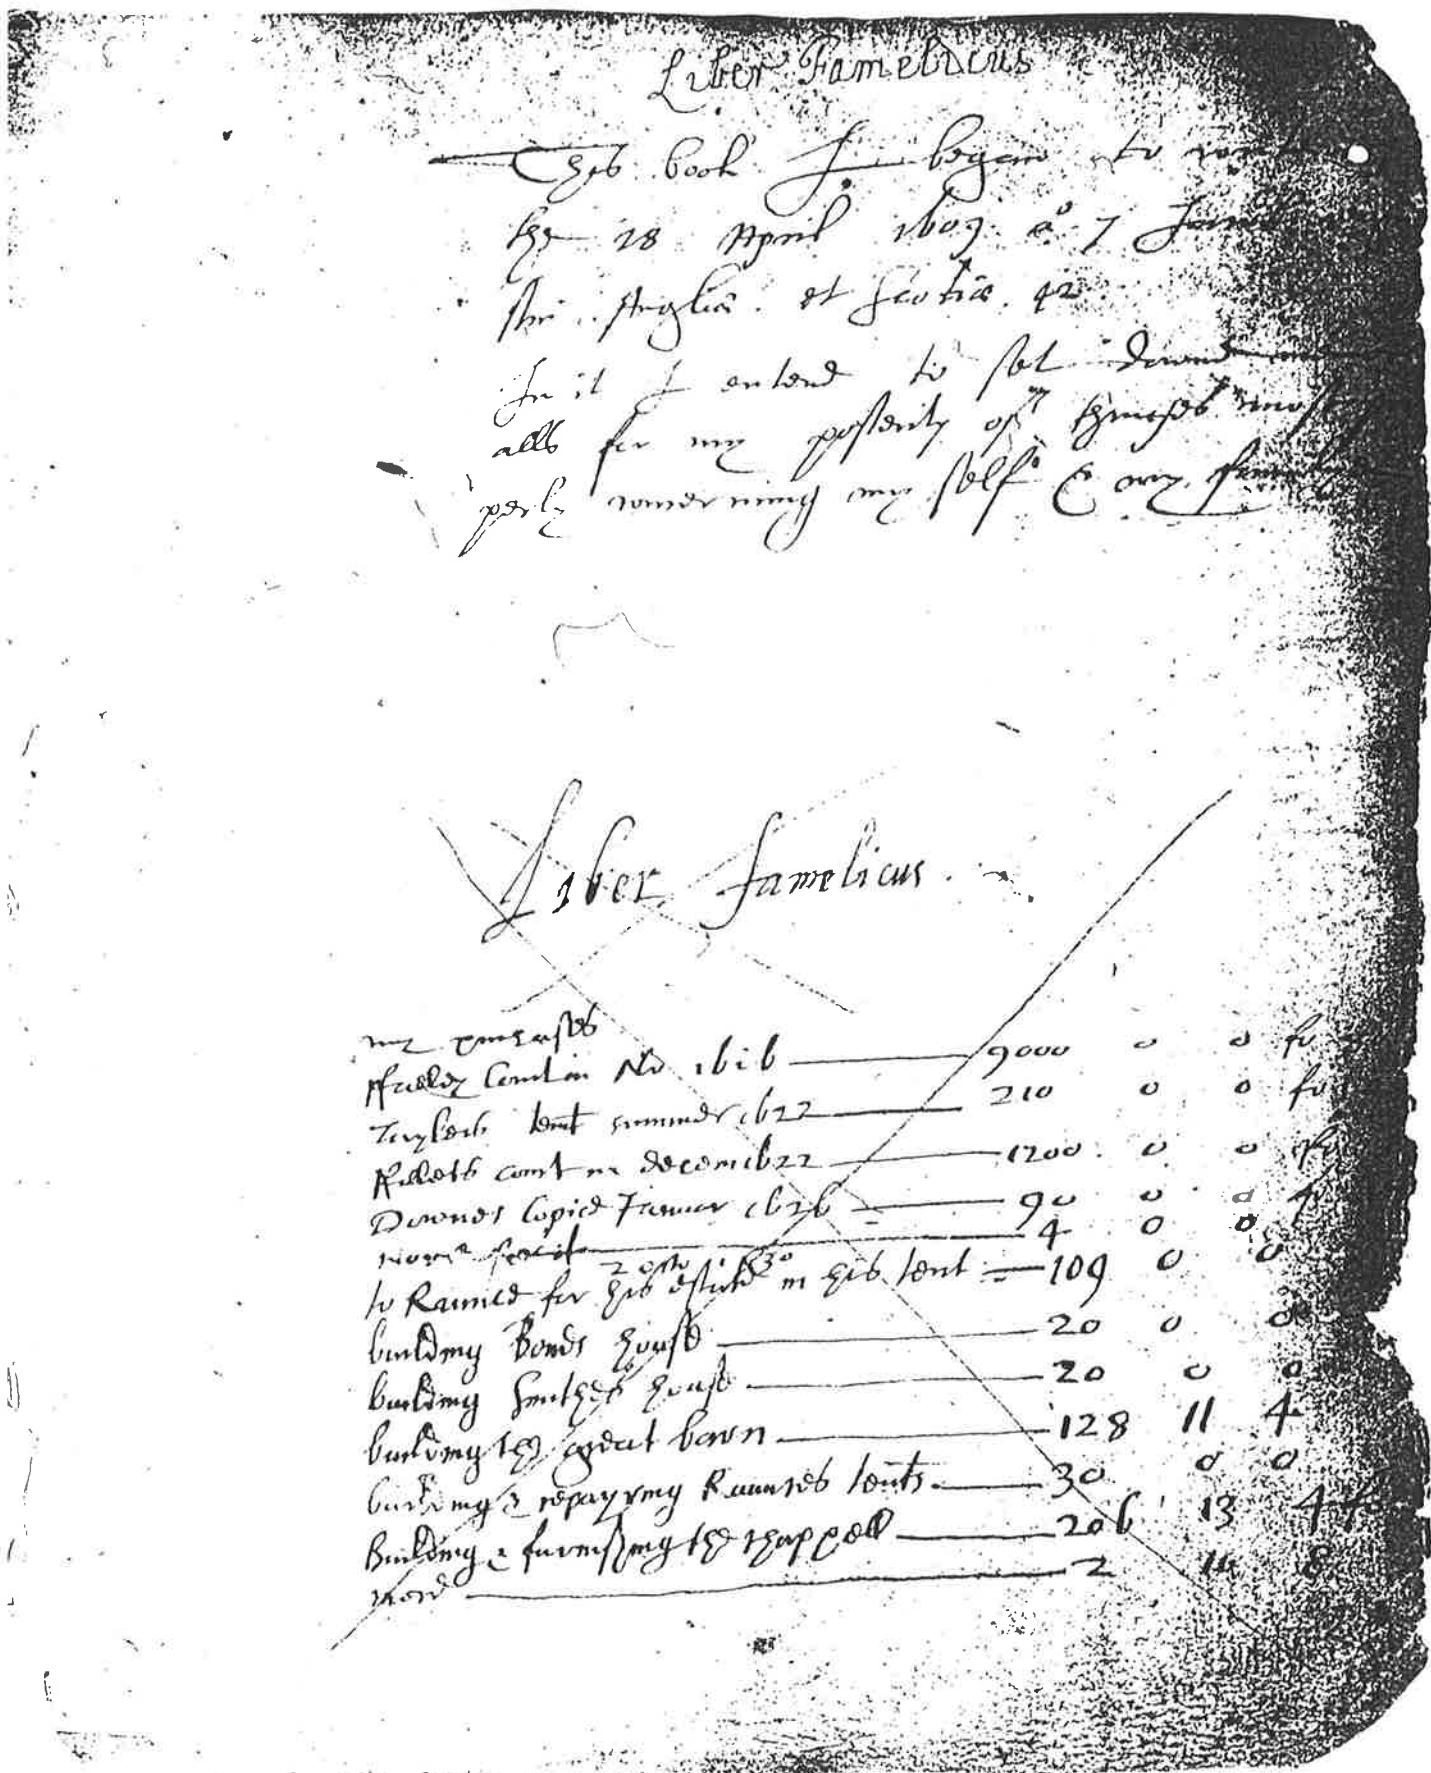 Liber Famelicus
This book I began to
the 28 April 1609 a° 7 Jacobi
Angliæ et Scotiæ 42
In it I entend to set downe
alls for my posterity of thinges
perly concerning my self & my family
Liber famelicus
my purchases
Fruelly 1616 9000 0 0 fo
Taylers tent summer 1622 210 0 0 fo
court in decem 1622 1200 0 0 fo
Downes Copies Januar 1626 90 0 0
More 4 0 0
to Raunce for his estate in his tent 109 0 0
building Bonds house 20 0 0
building house 20 0 0
building the great barn 128 11 4
building & repayring Raunces tents 30 0 0
Building & furnishing the chappell 206 13 4
more 2 8